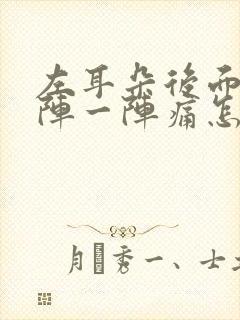 左耳朵後面
陣一陣痛怎
月秀一、士